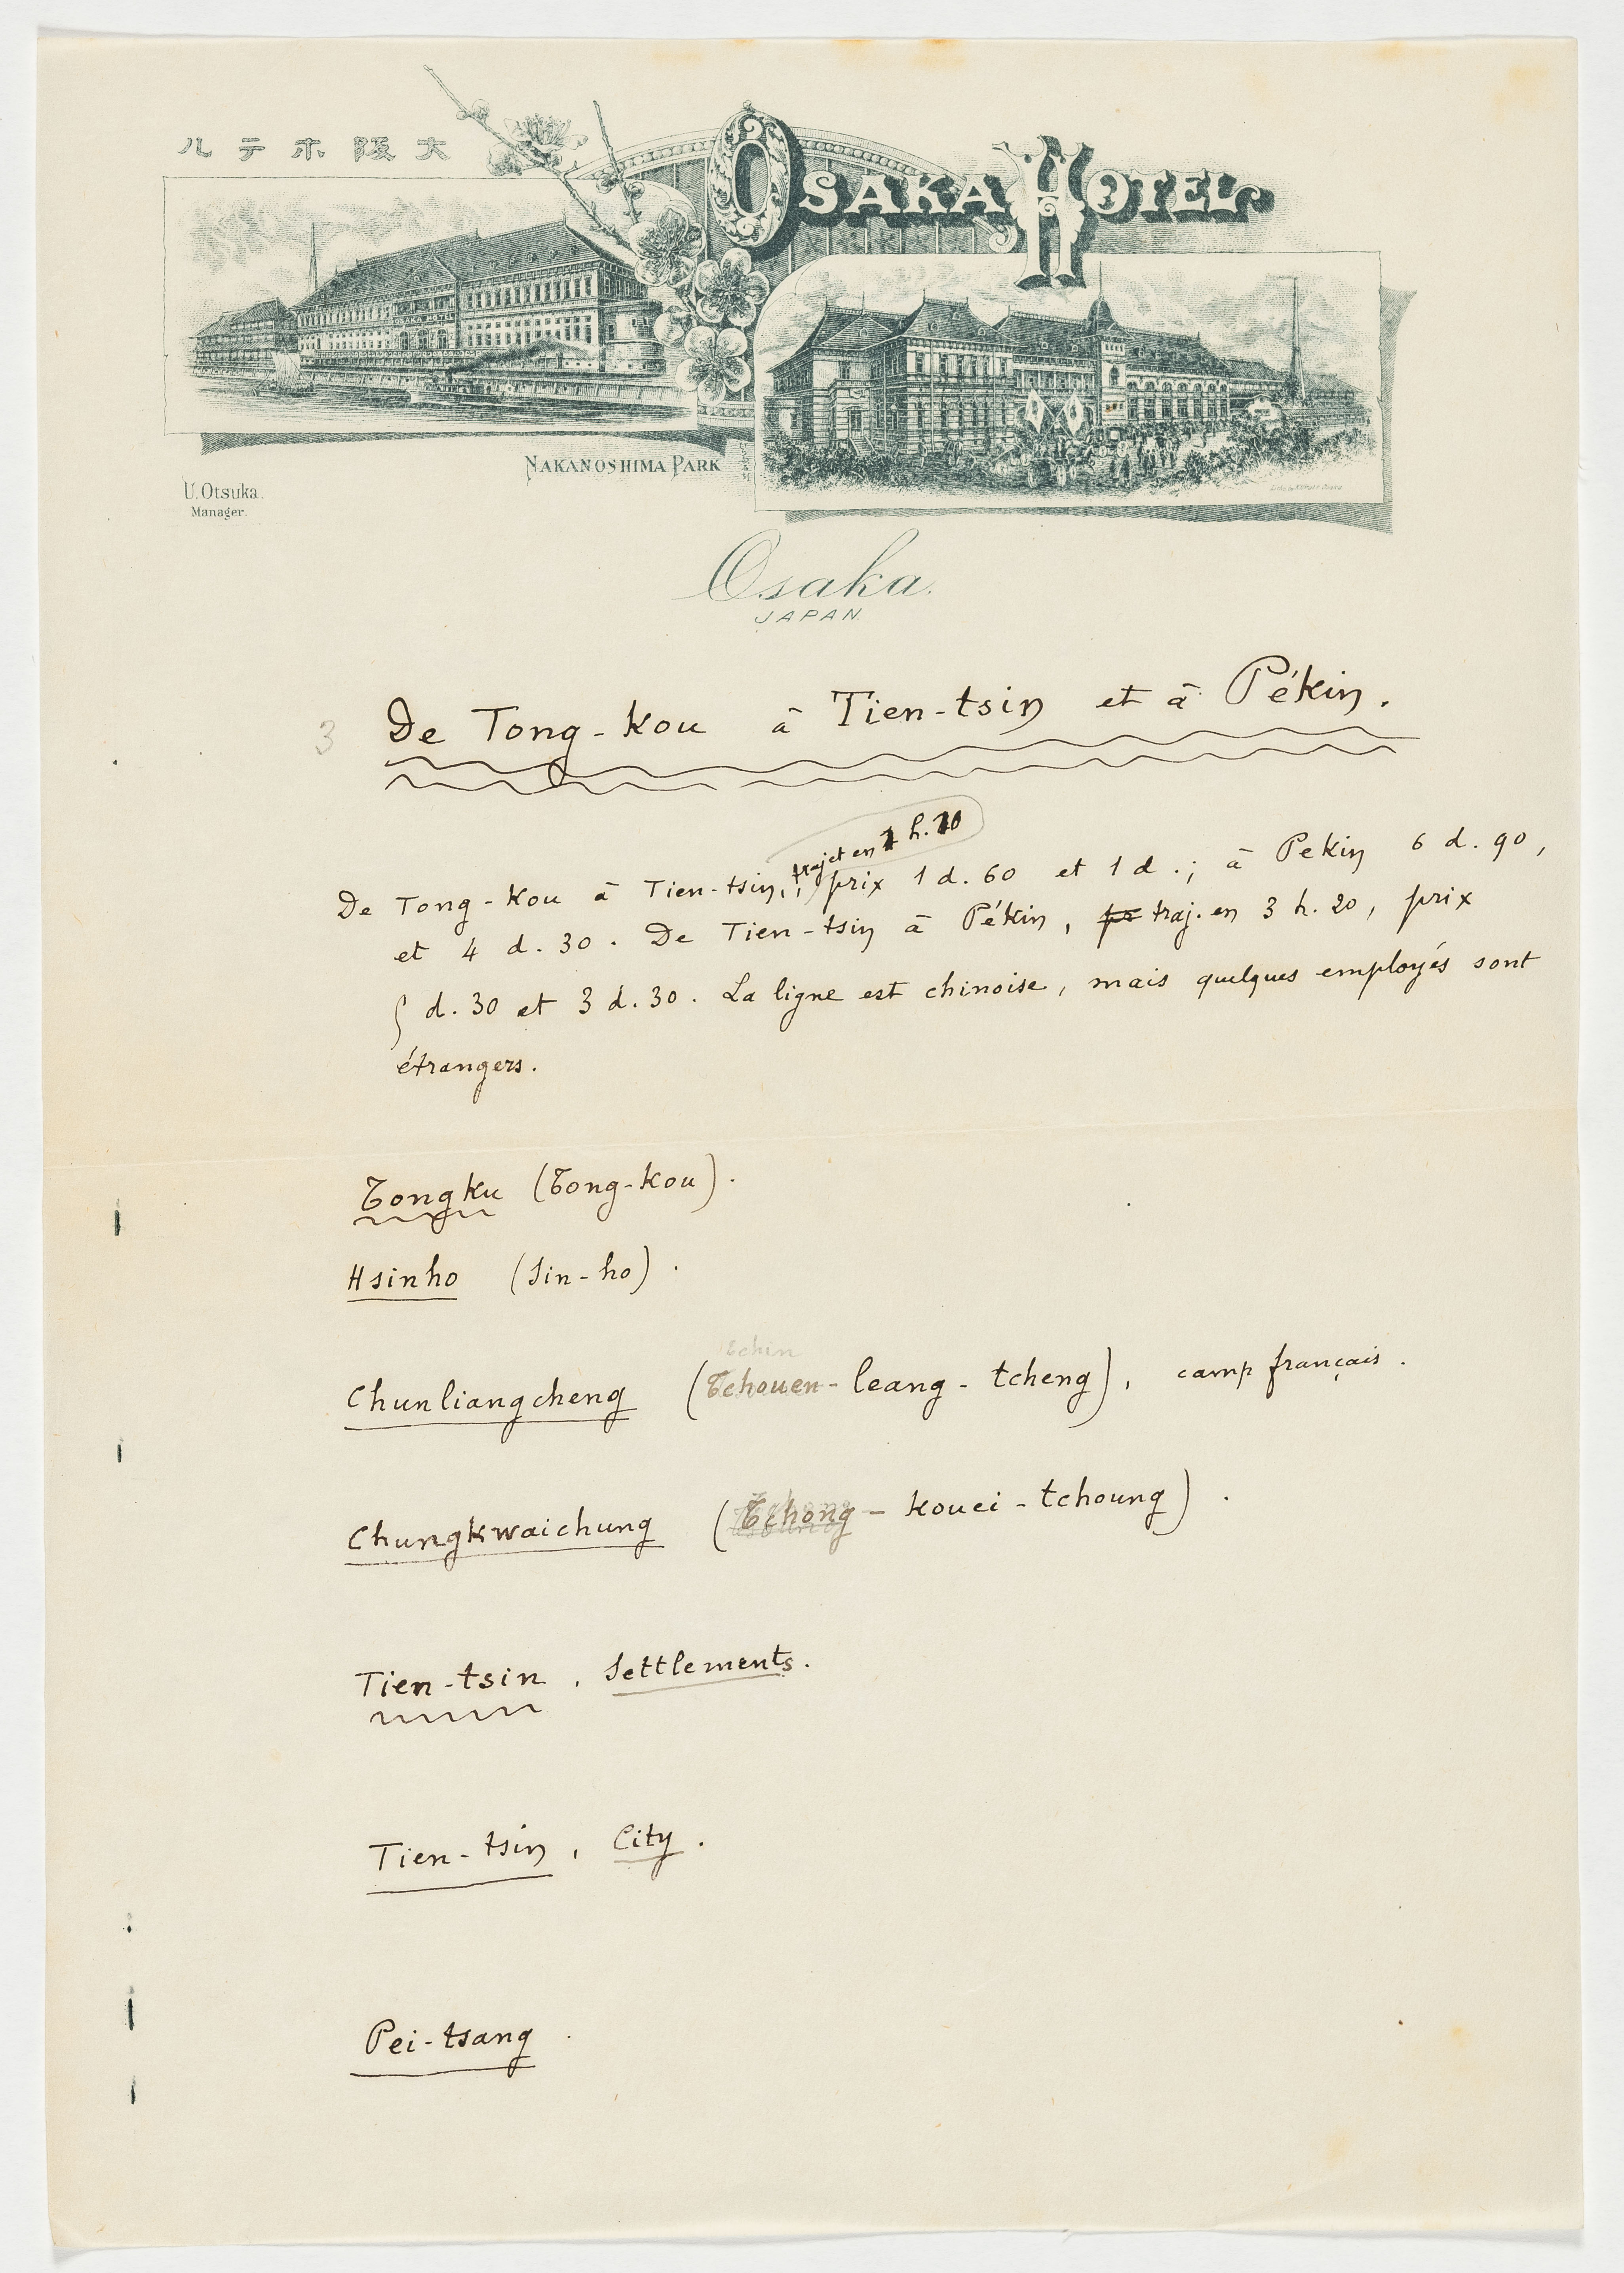 ルテホ阪大
OSAKA HOTEL
NAKANOSHIMA PARK
U. Otsuka.
Manager.
Osaka.
JAPAN.
3 De Tong-Kou à Tien-tsin et à Pékin.
trajet en 1 h. 10
De Tong-Kou à Tien-tsin, prix 1 d. 60 et 1 d.; à Pekin 6 d. 90,
et 4 d. 30. De Tien-tsin à Pékin, traj. en 3 h. 20, prix
5 d. 30 et 3 d. 30. La ligne est chinoise, mais quelques employés sont
étrangers.
Tongku (Tong-Kou).
Hsinho (Sin-ho).
Tchin
Chunliangcheng (Tchouen-leang-tcheng), camp français.
Chungkwaichung (Tchong-Kouei-tchoung).
Tien-tsin, Settlements.
Tien-tsin, City.
Pei-tsang.